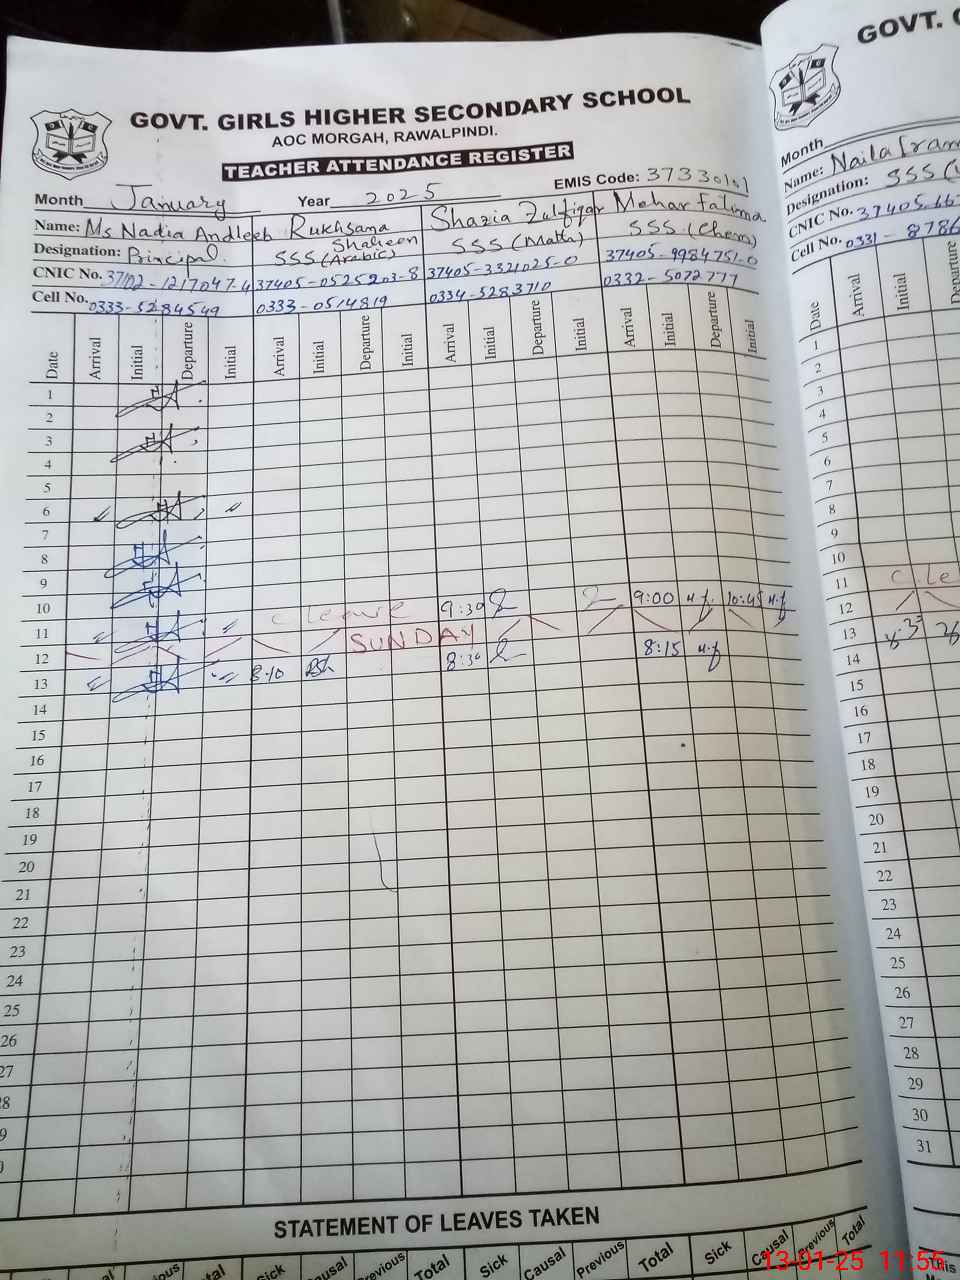 GOVT. GIRLS HIGHER SECONDARY SCHOOL
AOC MORGAH, RAWALPINDI.
TEACHER ATTENDANCE REGISTER
Month January Year 2025 EMIS Code: 37330101
Name: Ms Nadia Andleeb Rukhsana Shaheen Shazia Zulfiqar Mehar Fatima
Designation: Principal. SSS (Arabic) SSS (Math) SSS. (Chem)
CNIC No. 37102-1217047-4 37405-0525203-8 37405-3321025-0 37405-9984751-0
Cell No. 0333-5284549 0333-0514819 0334-5283710 0332-5072777
Date Arrival Initial Departure Initial Arrival Initial Departure Initial Arrival Initial Departure Initial Arrival Initial Departure Initial
1
2
3
4
5
6
7
8
9
10 c leave 9:30 9:00 M.f 10:45 M.f
11
12 SUNDAY
13 8:10 8:30 8:15 M.f
14
15
16
17
18
19
20
21
22
23
24
25
26
27
28
9
STATEMENT OF LEAVES TAKEN
Sick Causal Previous Total Sick Causal Previous Total
GOVT.
Month
Name: Naila Iram
Designation: SSS
CNIC No. 37405-66
Cell No. 0331-8786
Date Arrival Initial
1
2
3
4
5
6
7
8
9
10
11 C. Le
12
13
14
15
16
17
18
19
20
21
22
23
24
25
26
27
28
29
30
31
13-01-25 11:55